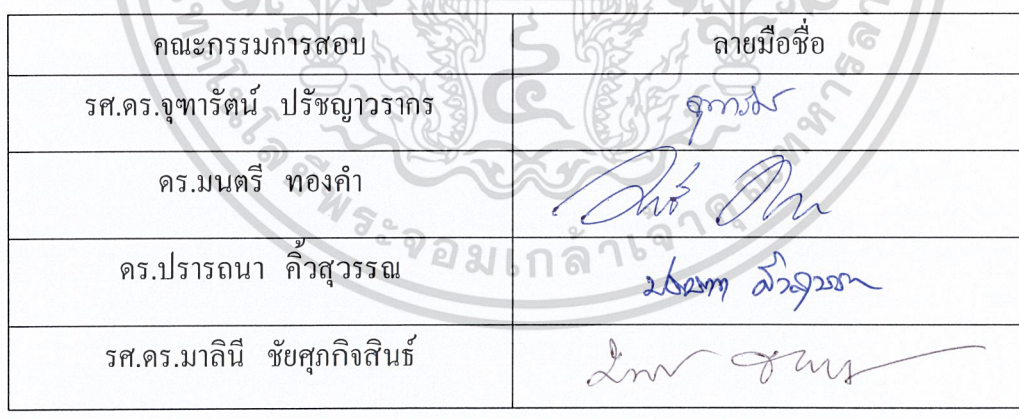 คณะกรรมการสอบ ลายมือชื่อ
รศ.ดร.จุฑารัตน์ ปรัชญาวรากร จุฑารัตน์
ดร.มนตรี ทองคำ
ดร.ปรารถนา คิ้วสุวรรณ ปรารถนา คิ้วสุวรรณ
รศ.ดร.มาลินี ชัยศุภกิจสินธ์
พระจอมเกล้าเจ้าคุณทหารลา